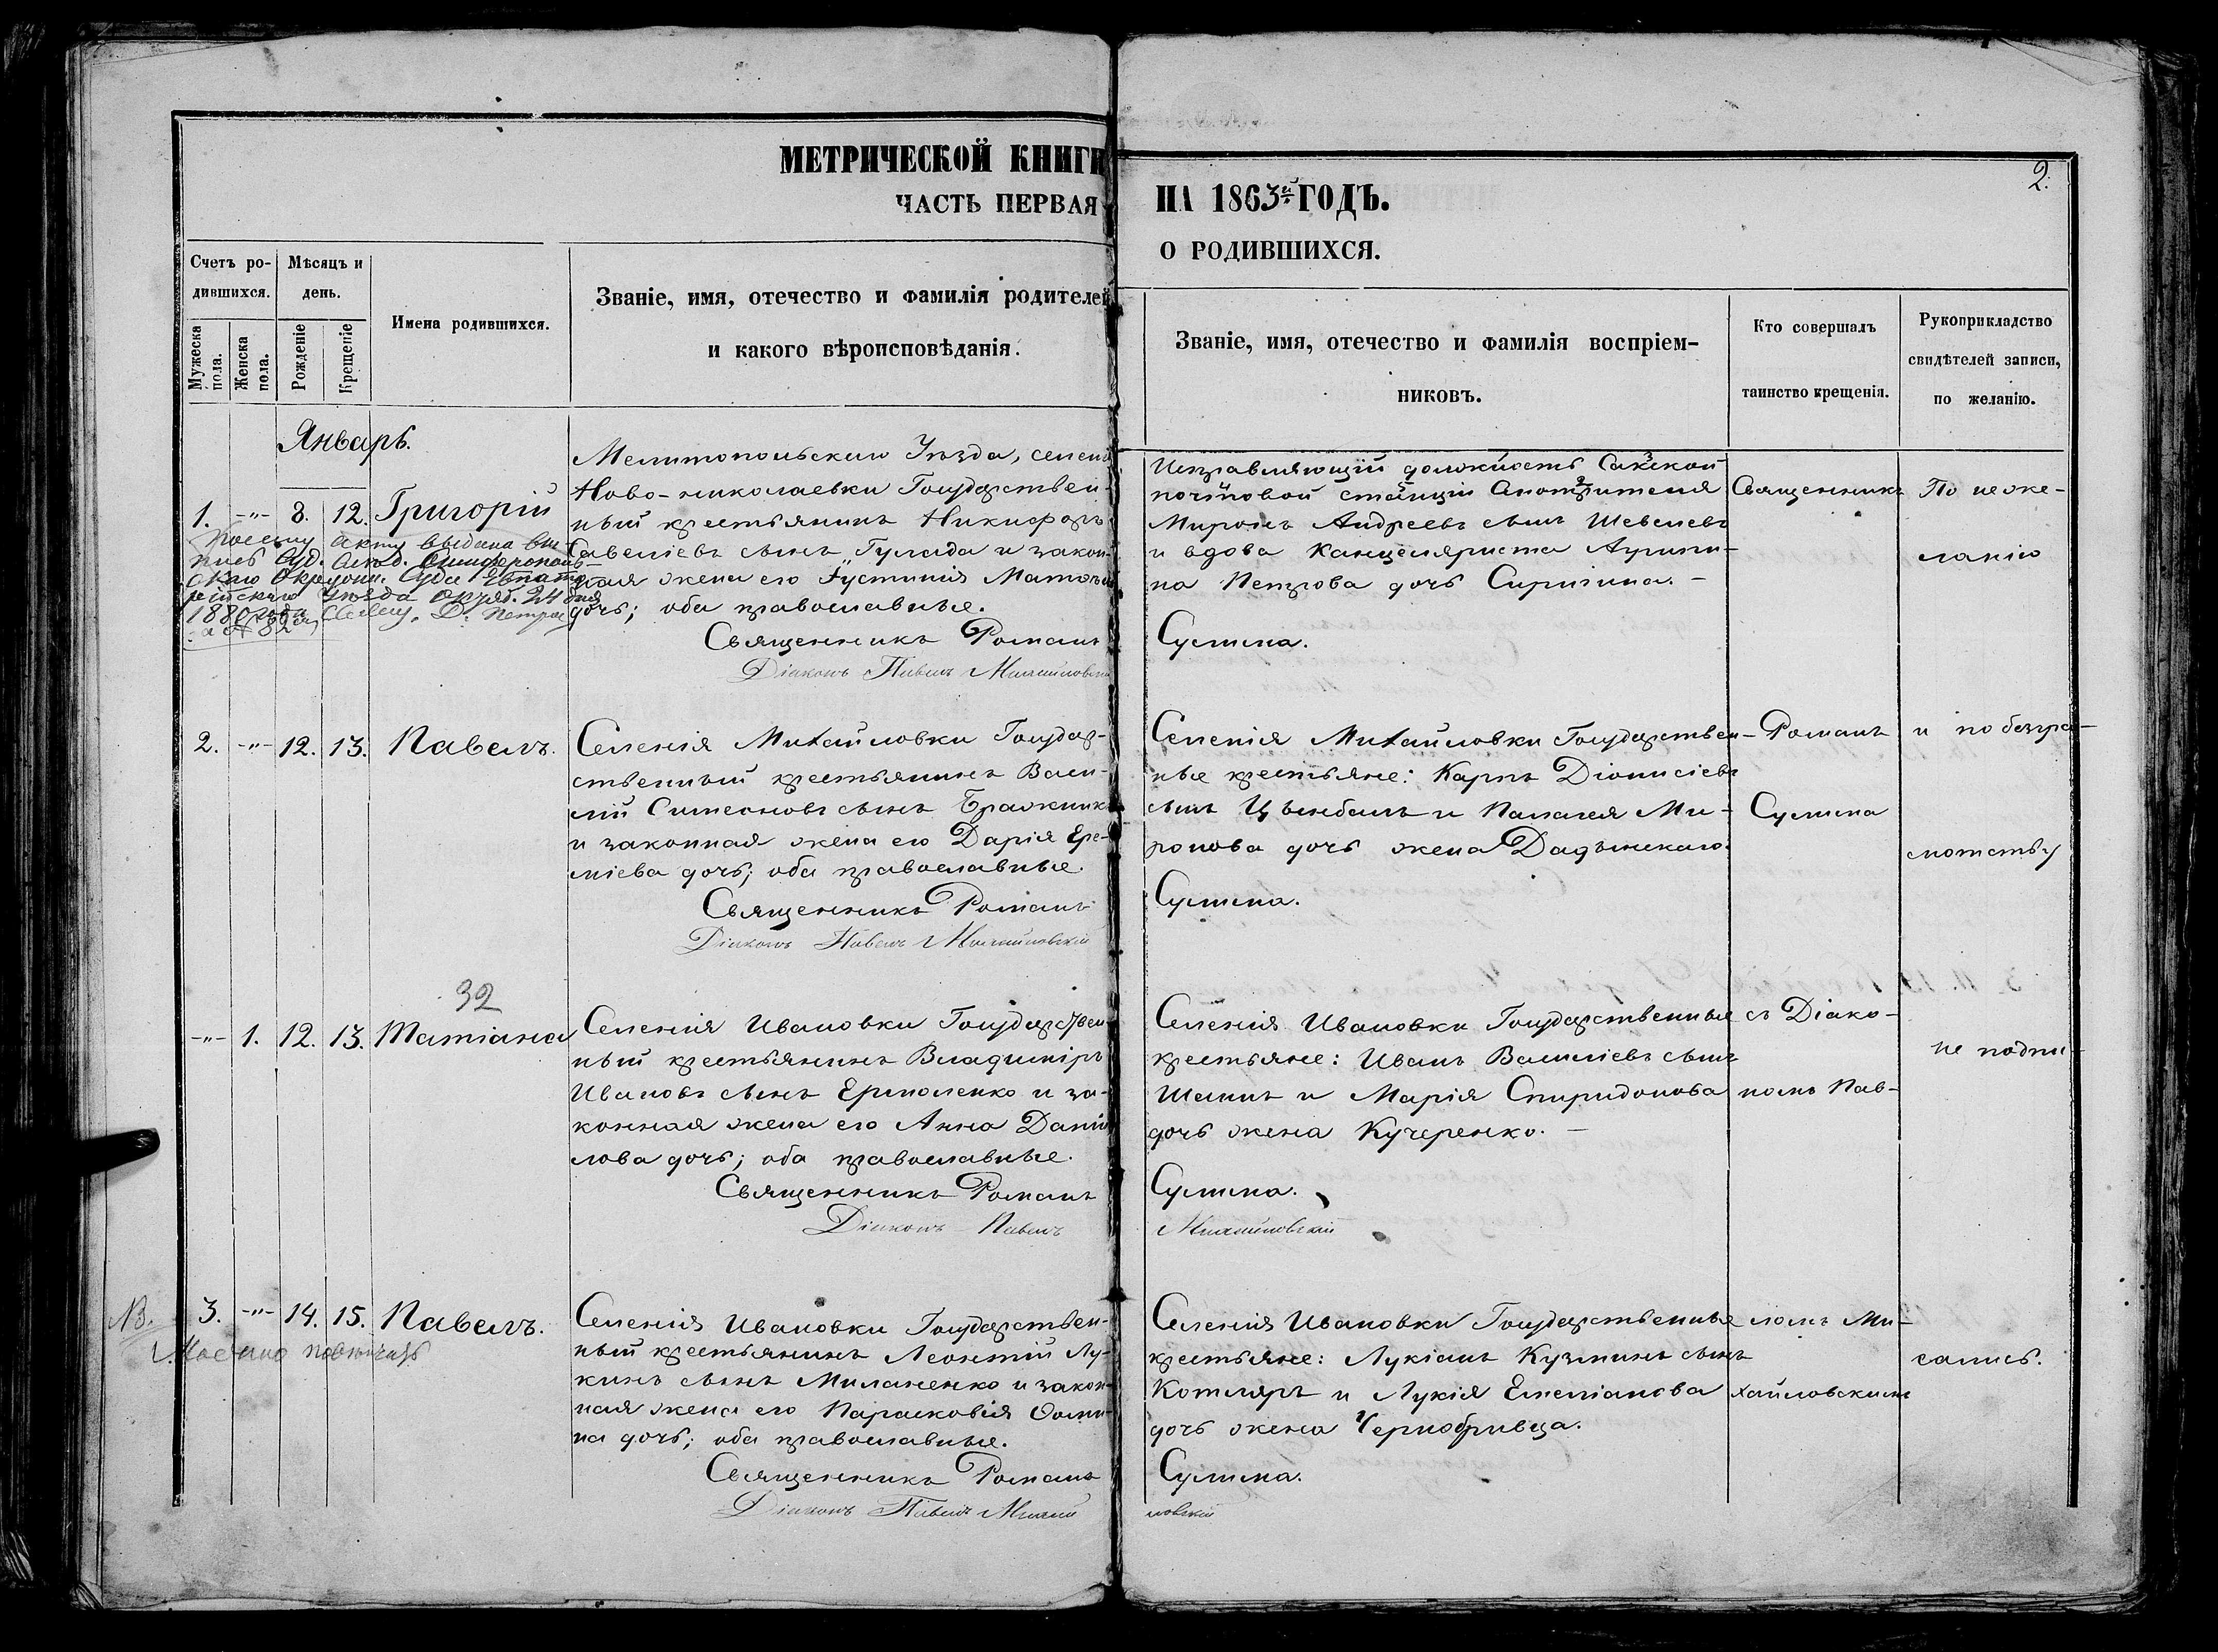 МЕТРИЧЕСКОЙ КНИГИ
ЧАСТЬ ПЕРВАЯ
Счетъ ро-
дившихся.
Мѣсяцъ и
день.
Мужеска
пола.
Женска
пола.
Рожденіе
Крещеніе
Имена родившихся.
Званіе, имя, отечество и фамилія родителей
и какого вѣроисповѣданія.
НА 1863й ГОДЪ.
2.
О РОДИВШИХСЯ.
Званіе, имя, отечество и фамилія воспріем-
никовъ.
Кто совершалъ
таинство крещенія.
Рукоприкладство
свидѣтелей записи,
по желанію.
Январь.
1. -"- 8. 12. Григорій
Мелитопольскаго Уѣзда, селенія
Ново-николаевки Государствен-
ный крестьянинъ Никифоръ
Савеліевъ сынъ Гулада и закон-
ная жена его Іустинія
дочь; оба православные.
Священникъ Романъ
Діаконъ Павелъ Михайловскій
По сему акту выдана вы-
1880 года
Исправляющій должность Сакской
почтовой станціи Смотрителя
Миронъ Андреевъ сынъ Шевелевъ
и вдова Канцеляриста Агрипи-
на Петрова дочь
Сулима.
Священникъ
По неже-
ланію
2. -"- 12. 13. Павелъ.
Селенія Михайловки Государ-
ственный крестьянинъ Васи-
лій Симеоновъ сынъ Бражникъ
и законная жена его Дарія Ере-
міева дочь; оба православные.
Священникъ Романъ
Діаконъ Павелъ Михайловскій
Селенія Михайловки Государствен-
ные крестьяне: Карпъ Діонисіевъ
сынъ Цымбалъ и Палагея Ми-
ронова дочь жена Дадынскаго.
Сулима.
Романъ
Сулима
и по безгра-
мотству
32
-"- 1. 12. 13. Татіана
Селенія Ивановки Государствен-
ный крестьянинъ Владиміръ
Ивановъ сынъ Ермоленко и за-
конная жена его Анна Дани-
лова дочь; оба православные.
Священникъ Романъ
Діаконъ Павелъ
Селенія Ивановки Государственные
крестьяне: Иванъ Василіевъ сынъ
и Марія Спиридонова
дочь жена Кучеренко. -
Сулима.
Михайловскій
съ Діако-
номъ Пав-
не подпи-
NB. 3. -"- 14. 15. Павелъ.
Селенія Ивановки Государствен-
ный крестьянинъ Леонтій Лу-
кинъ сынъ Миланенко и закон-
ная жена его Парасковія Ѳоми-
на дочь; оба православные.
Священникъ Романъ
Діаконъ Павелъ Михай
Селенія Ивановки Государственные
крестьяне: Лукіанъ Кузминъ сынъ
Котляръ и Лукія Емеліанова
дочь жена Чернобривца.
Сулима.
ловскій
ломъ Ми-
хайловскимъ
сались.